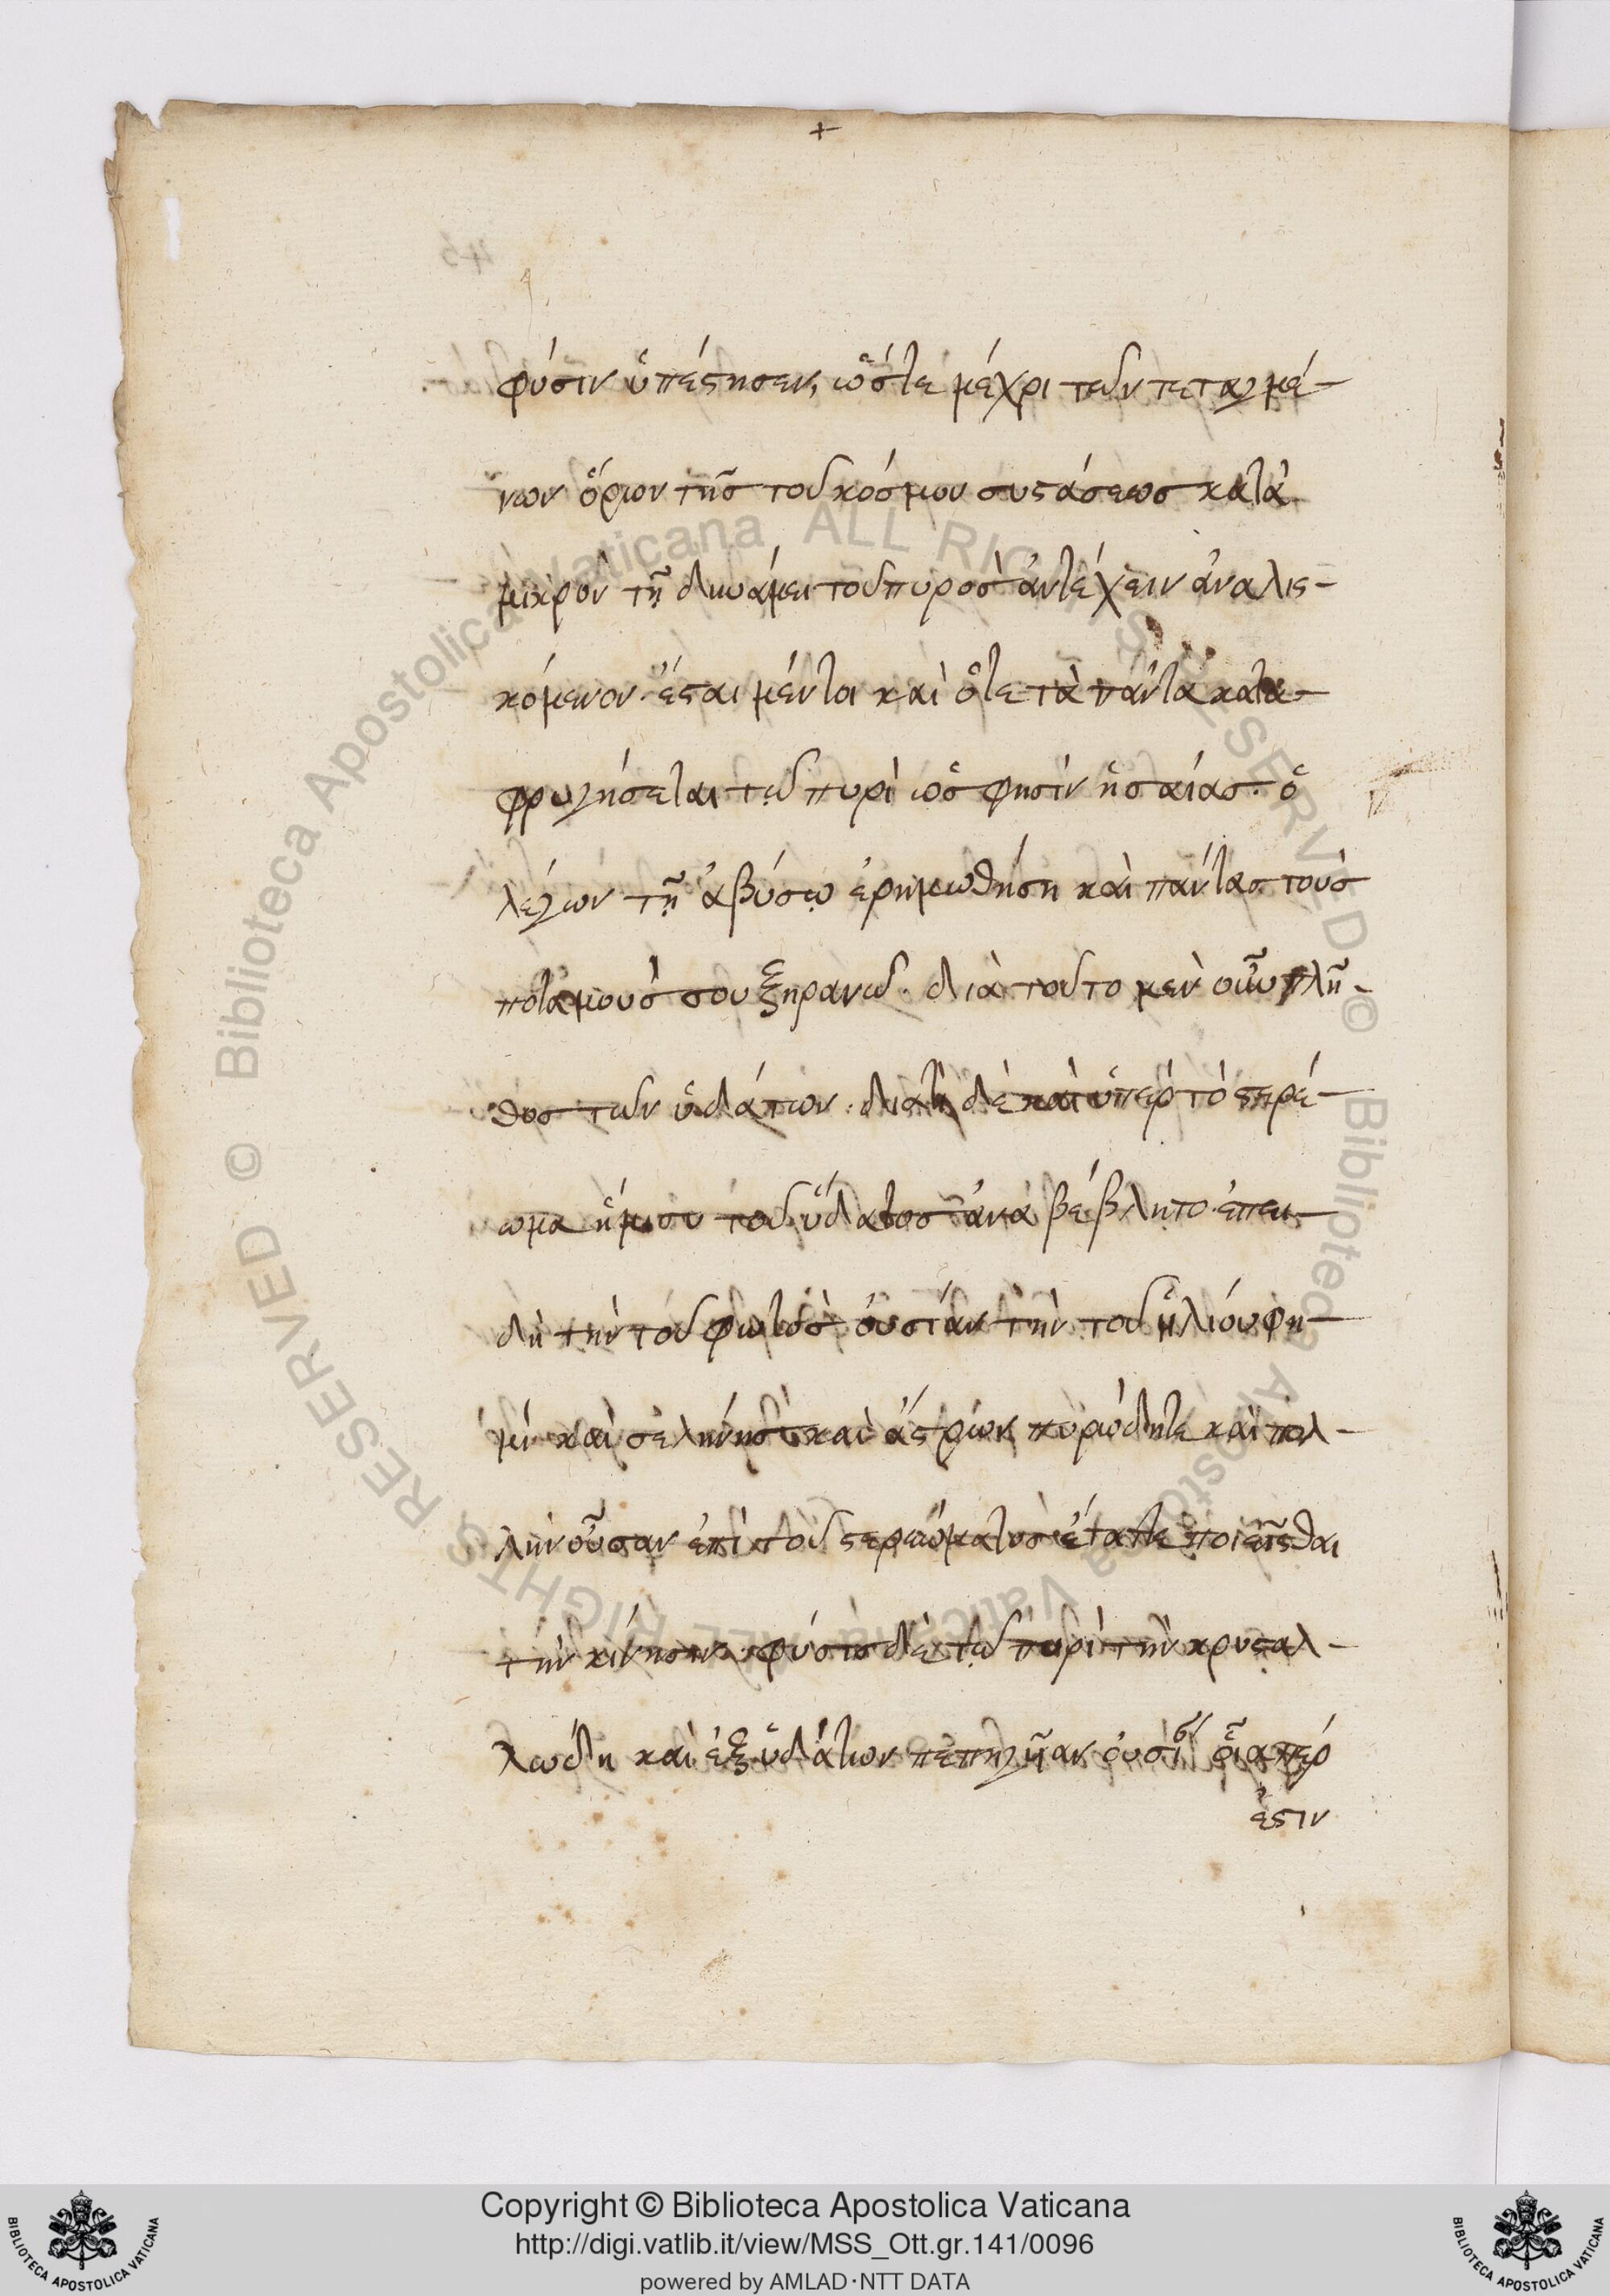 +
φύσιν ὑπέστησεν, ὥστε μέχρι τῶν τεταγμέ-
νων ὅρων τῆς τοῦ κόσμου συστάσεως κατὰ
μικρὸν τῇ δυνάμει τοῦ πυρὸς ἀντέχειν ἀναλισ-
κόμενον. ἔσται μέντοι καὶ ὅτε τὰ πάντα κατα-
φρυγήσεται τῷ πυρὶ ὥς φησιν ἡσαΐας. ὁ
λέγων τῇ ἀβύσσῳ ἐρημωθήσῃ καὶ πάντας τοὺς
ποταμούς σου ξηρανῶ. διὰ τοῦτο μὲν οὖν πλῆ-
θος τῶν ὑδάτων. διατί δὲ καὶ ὑπὲρ τὸ στερέ-
ωμα ἥμισυ τοῦ ὕδατος ἀναβέβλητο. ἐπει-
δὴ τὴν τοῦ φωτὸς οὐσίαν τὴν τοῦ ἡλίου φη-
μί καὶ σελήνης καὶ ἄστρων πυρώδητε καὶ πολ-
λὴν οὖσαν ἐπὶ τοῦ στερεώματος ἔταττε ποιεῖσθαι
τὴν κίνησιν. φύσις δὲ τῷ πυρὶ τὴν κρυσταλ-
λώδη καὶ ἐξ ὑδάτων πεπηγῆαν οὐσίαν οἵαπερ
ἐστιν
Copyright © Biblioteca Apostolica Vaticana
http://digi.vatlib.it/view/MSS_Ott.gr.141/0096
powered by AMLAD·NTT DATA
© Biblioteca Apostolica Vaticana ALL RIGHTS RESERVED © Biblioteca Apostolica Vaticana ALL RIGHTS RESERVED
BIBLIOTECA APOSTOLICA VATICANA
BIBLIOTECA APOSTOLICA VATICANA